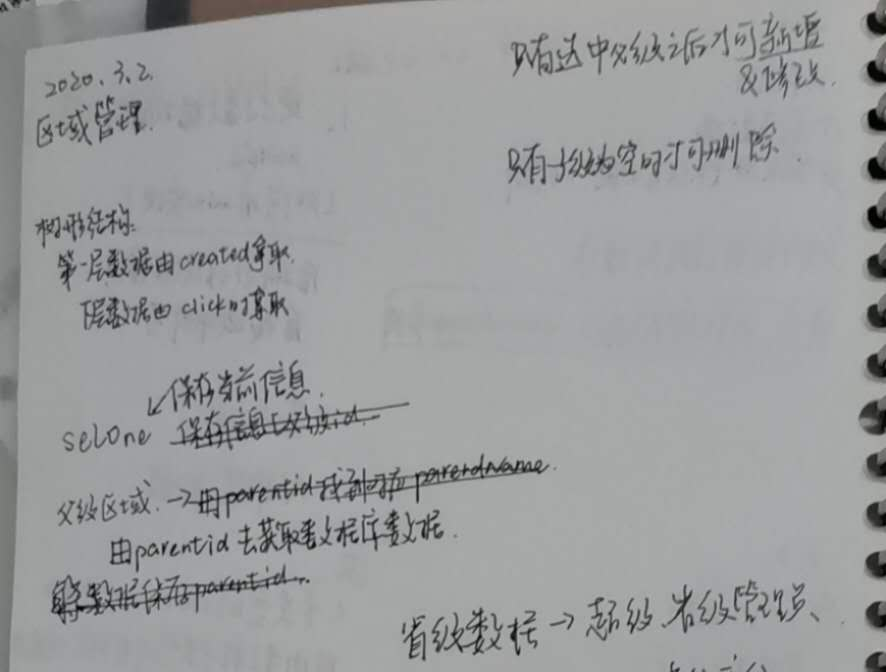 2020.3.2.
区域管理.
只有选中父级之后才可新增
&修改.
只有子级为空时才可删除.
树形结构:
第一层数据由created拿取.
下层数据由click时拿取
↙保存当前信息.
selOne 保存信息
父级区域.→用parentid找到对应parendname.
由parentid去获取数据库数据.
将数据保存parentid..
省级数据→超级、省级管理员、